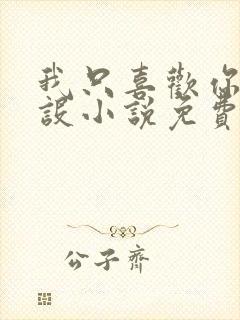 我只喜歡你
設小說免費
公子齊